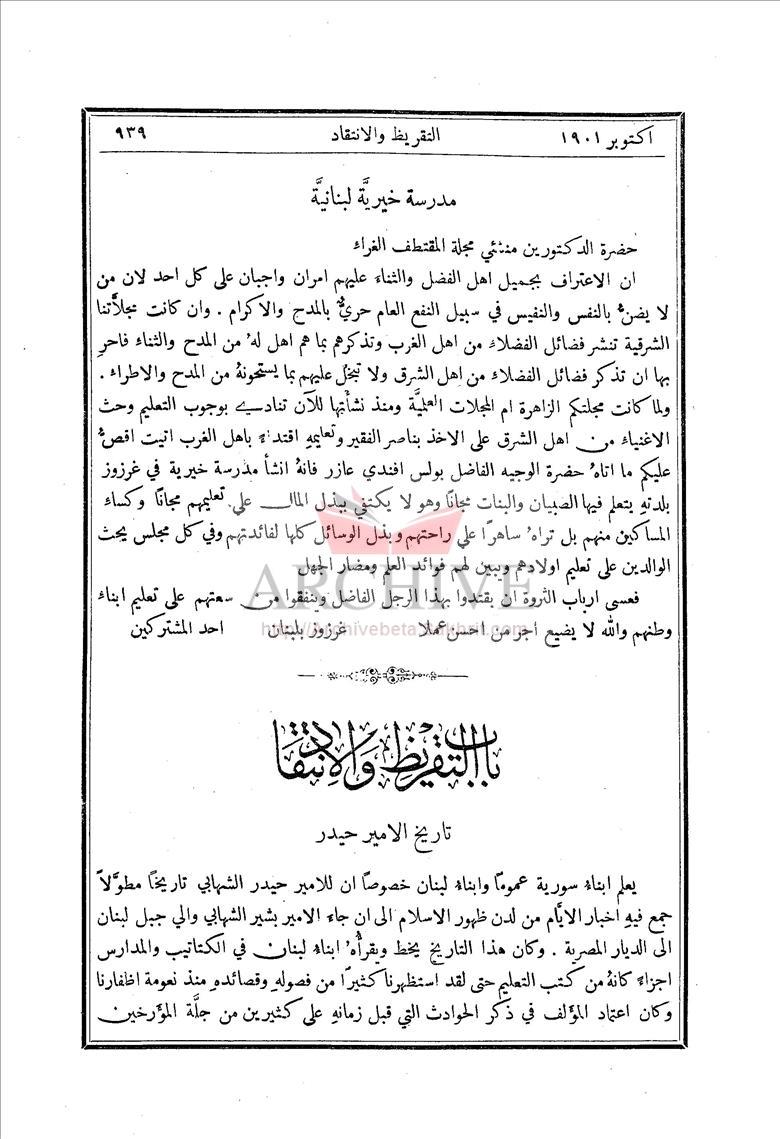 اكتوبر ١٩٠١
التقريظ والانتقاد
٩٣٩
مدرسة خيريَّة لبنانيَّة
حضرة الدكتورين منشئي مجلة المقتطف الغراء
ان الاعتراف بجميل اهل الفضل والثناء عليهم امران واجبان على كل احد لان من
لا يضنُّ بالنفس والنفيس في سبيل النفع العام حريٌّ بالمدح والاكرام . وان كانت مجلاَّتنا
الشرقية تنشر فضائل الفضلاء من اهل الغرب وتذكرهم بما هم اهل لهُ من المدح والثناء فاحرِ
بها ان تذكر فضائل الفضلاء من اهل الشرق ولا تبخل عليهم بما يستحقونهُ من المدح والاطراء .
ولما كانت مجلتكم الزاهرة ام المجلات العلميَّة ومنذ نشأتها للآن تنادي بوجوب التعليم وحث
الاغنياء من اهل الشرق على الاخذ بناصر الفقير وتعليمهِ اقتداءً باهل الغرب اتيت اقصُّ
عليكم ما اتاهُ حضرة الوجيه الفاضل بولس افندي عازر فانهُ انشأ مدرسة خيرية في غرزوز
بلدتهِ يتعلم فيها الصبيان والبنات مجانًا وهو لا يكتفي ببذل المال على تعليمهم مجانًا وكساء
المساكين منهم بل تراهُ ساهرًا على راحتهم وبذل الوسائل كلها لفائدتهم وفي كل مجلس يحث
الوالدين على تعليم اولادهم ويبين لهم فوائد العلم ومضار الجهل
فعسى ارباب الثروة ان يقتدوا بهذا الرجل الفاضل وينفقوا من سعتهم على تعليم ابناء
وطنهم والله لا يضيع اجر من احسن عملا
غرزوز بلبنان
احد المشتركين
ARCHIVE
http://Archivebeta.Sakhrit.com
باب التقريظ والانتقاد
تاريخ الامير حيدر
يعلم ابناء سورية عمومًا وابناء لبنان خصوصًا ان للامير حيدر الشهابي تاريخًا مطوَّلاً
جمع فيهِ اخبار الايَّام من لدن ظهور الاسلام الى ان جاء الامير بشير الشهابي والي جبل لبنان
الى الديار المصرية . وكان هذا التاريخ يخط ويقرأُهُ ابناء لبنان في الكتاتيب والمدارس
اجزاءً كانهُ من كتب التعليم حتى لقد استظهرنا كثيرًا من فصولهِ وقصائدهِ منذ نعومة اظفارنا
وكان اعتماد المؤلف في ذكر الحوادث التي قبل زمانهِ على كثيرين من جلَّة المؤرخين